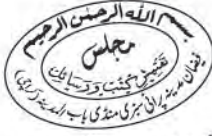 بسم الله الرحمن الرحيم
مجلس
تفتیش کتب و رسائل
فیضان مدینہ پرانی سبزی منڈی باب المدینہ کراچی